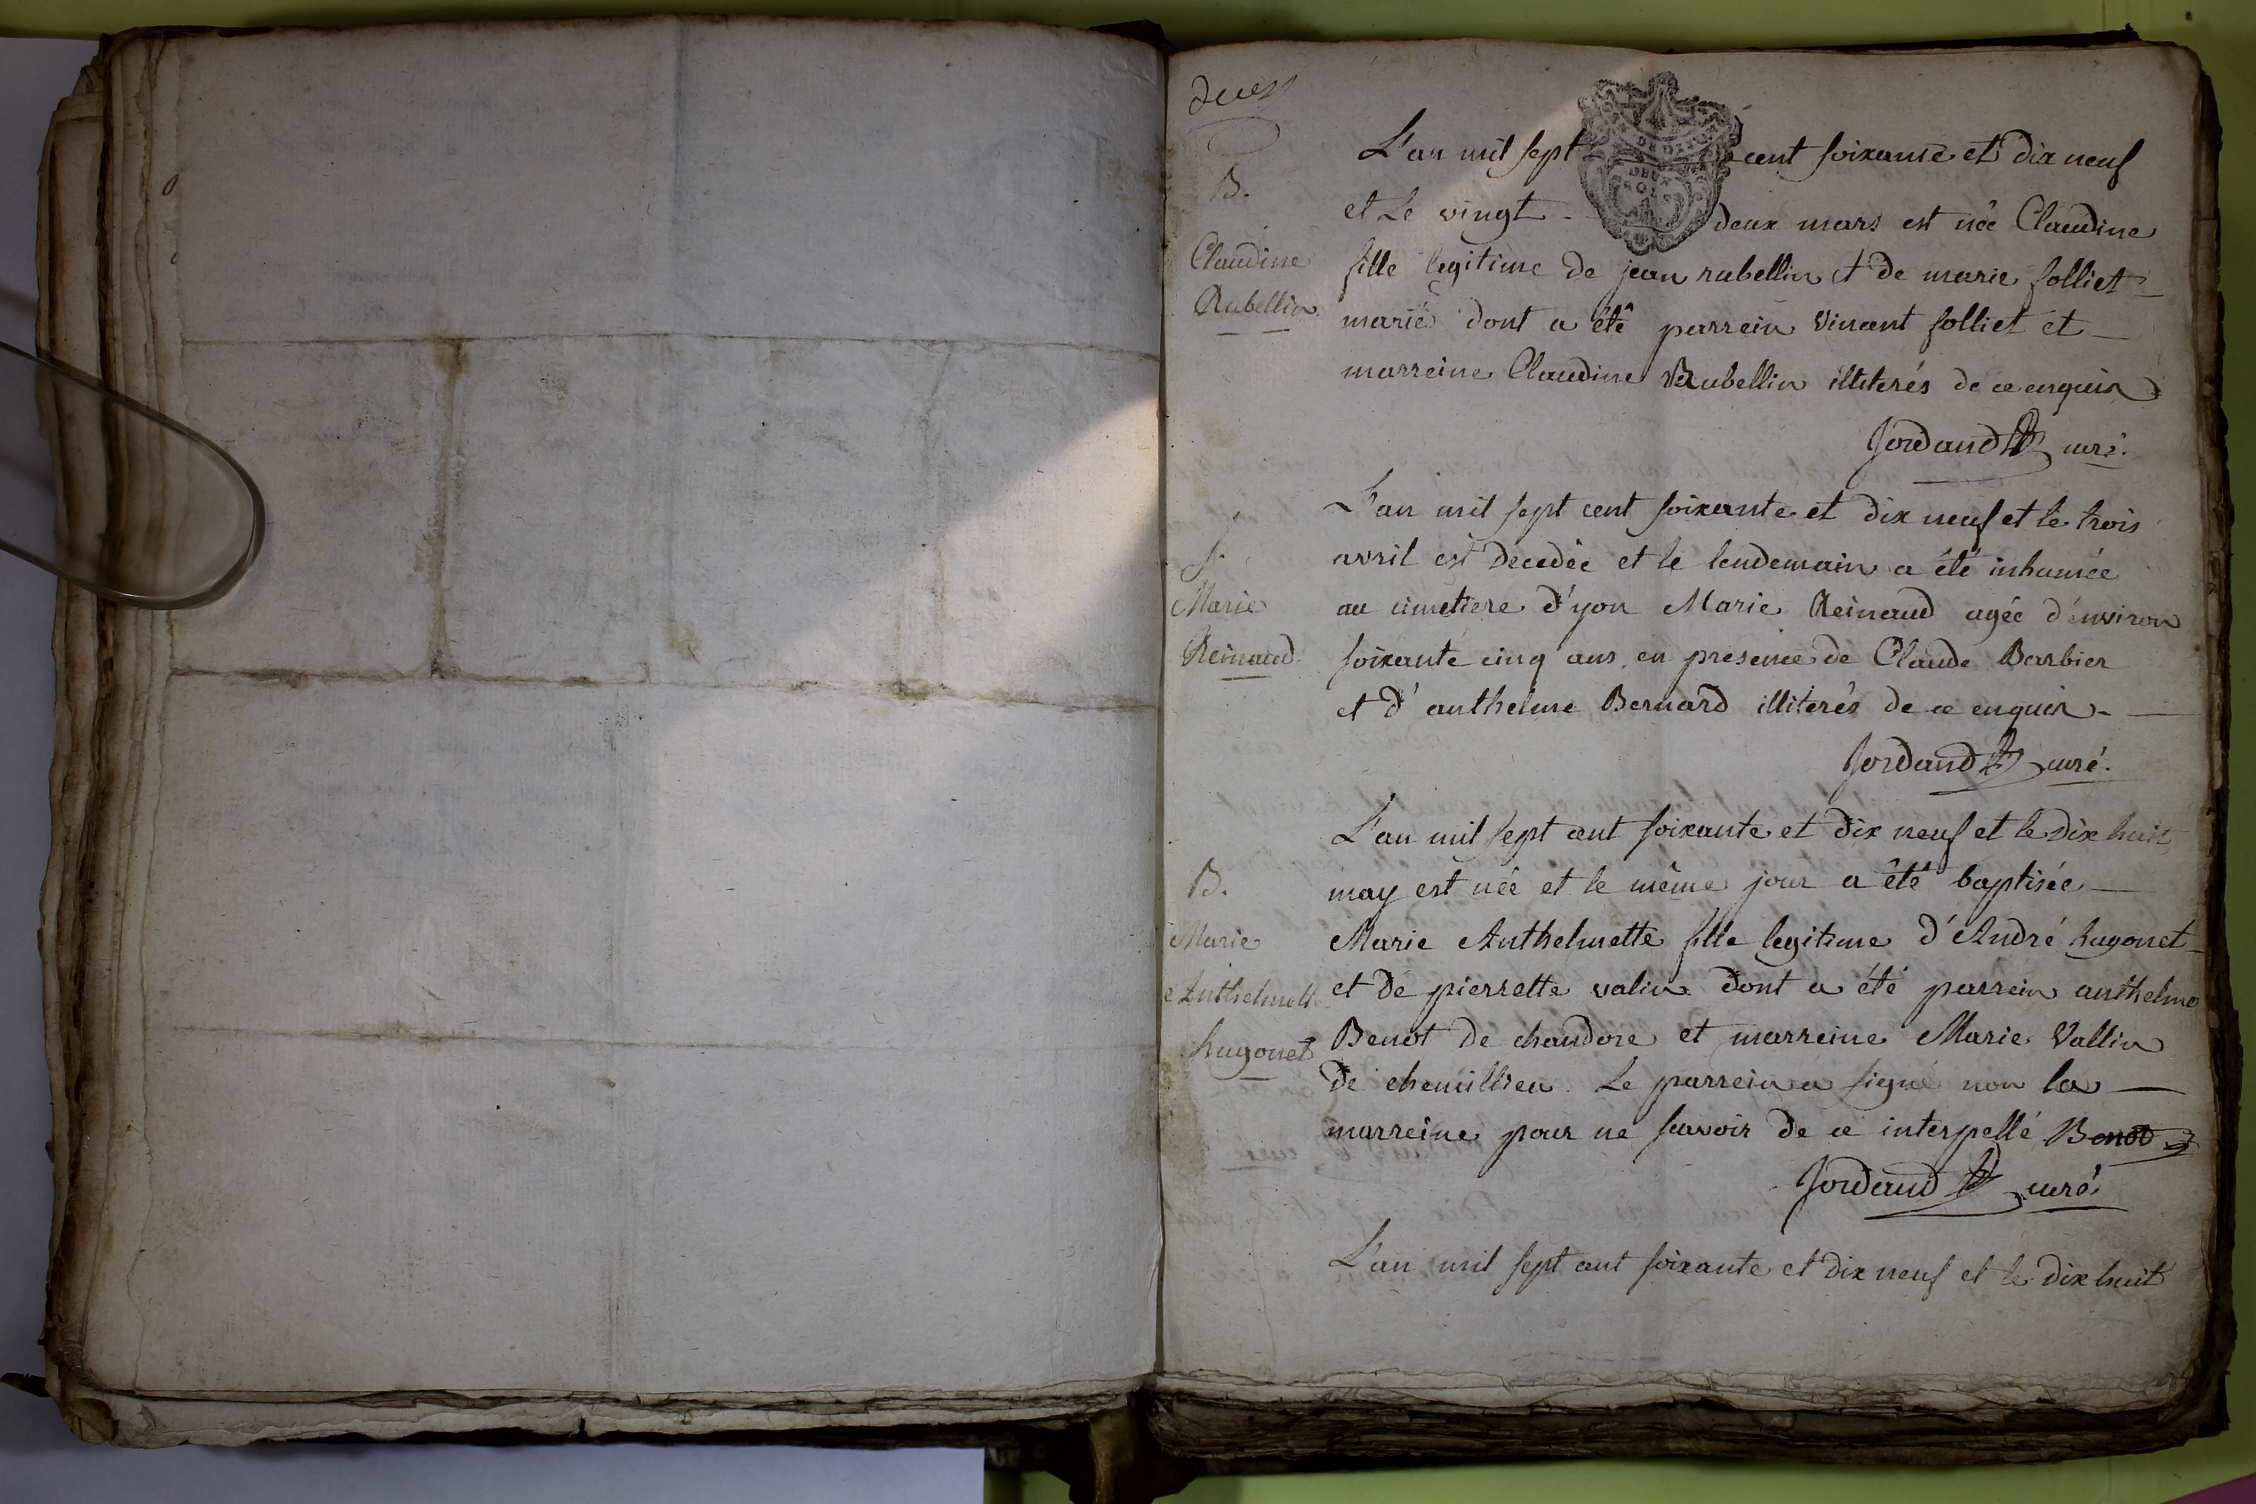 B.
Claudine
Rubellin
L'an mil sept cent soixante et dix neuf
et le vingt - deux mars est née Claudine
fille legitime de jean rubellin et de marie folliet
marié dont a été parrein vincent folliet et
marreine Claudine Rubellin illiterés de ce enquis
Jordand curé.
S.
Marie
Reinaud
L'an mil sept cent soixante et dix neuf et le trois
avril est decedée et le lendemain a été inhumée
au cimetiere d'yon Marie Reinaud agée d'environ
soixante cinq ans en presence de Claude Barbier
et d'anthelme Bernard illiterés de ce enquis
Jordand curé.
B.
Marie
Anthelmette
hugonet
L'an mil sept cent soixante et dix neuf et le dix huit
may est née et le même jour a été baptisée
Marie Anthelmette fille legitime d'André hugonet
et de pierrette valin dont a été parrein anthelme
Benot de chandore et marreine Marie Vallin
de chemillieu. Le parrein a signé non la
marreine pour ne savoir de ce interpellé Benot
Jordand curé
L'an mil sept cent soixante et dix neuf et le dix huit